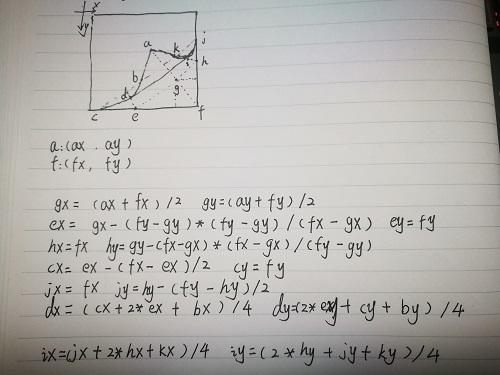 x
y
j
a
k
h
i
b
g
d
c
e
f
a:(ax . ay)
f:(fx, fy)
gx = (ax + fx) /2 gy=(ay+fy)/2
ex = gx-(fy-gy)*(fy-gy)/(fx-gx) ey=fy
hx=fx hy=gy-(fx-gx)*(fx-gx)/(fy-gy)
cx= ex-(fx-ex)/2 cy=fy
jx = fx jy=hy-(fy-hy)/2
dx = (cx+2*ex + bx) /4 dy=(2*ey+cy+by)/4
ix=(jx+2*hx+kx)/4 iy=(2*hy+jy+ky)/4